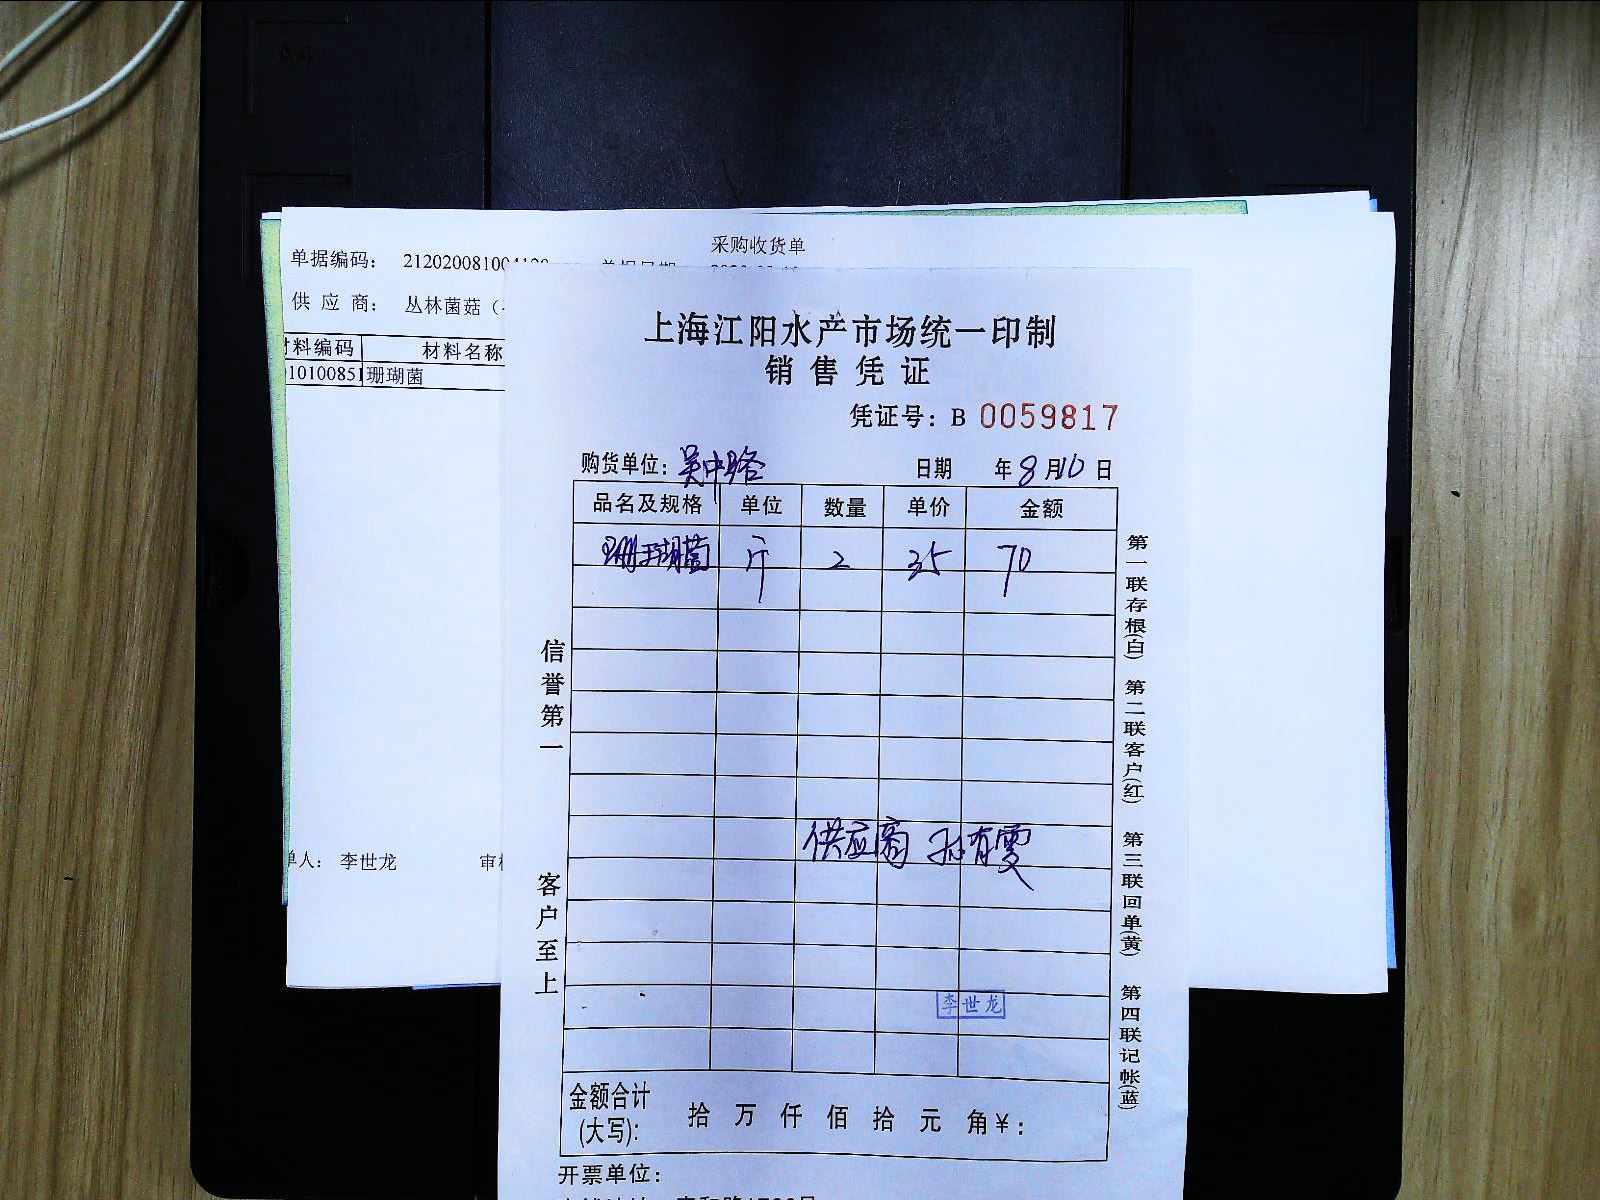 采购收货单
单据编码： 212020081004120
供 应 商： 丛林菌菇（
材料编码 材料名称
010100851 珊瑚菌
单人： 李世龙 审
上海江阳水产市场统一印制
销售凭证
凭证号：B 0059817
购货单位：吴中路 日期 年8月10日
品名及规格 单位 数量 单价 金额
珊瑚菌 斤 2 35 70
供应商 孙有雯
李世龙
信誉第一 客户至上
第一联存根(白) 第二联客户(红) 第三联回单(黄) 第四联记帐(蓝)
金额合计
(大写)： 拾 万 仟 佰 拾 元 角￥：
开票单位：